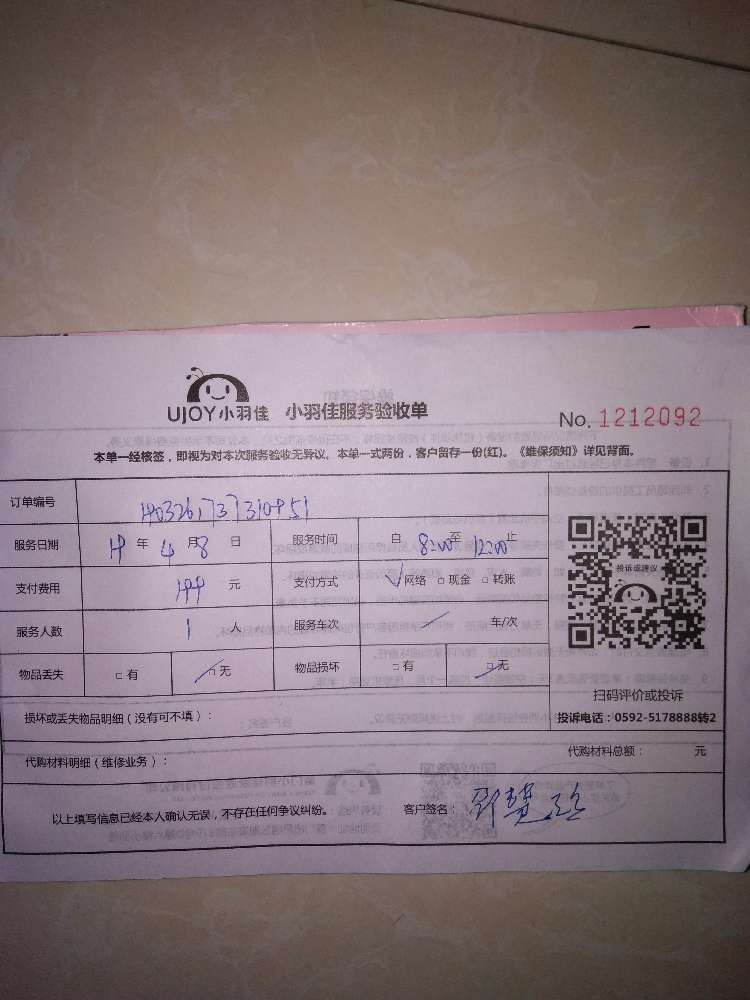 UJOY小羽佳 小羽佳服务验收单
No. 1212092
本单一经核签，即视为对本次服务验收无异议。本单一式两份，客户留存一份(红)。《维保须知》详见背面。
订单编号
服务日期 19 年 4 月 8 日 服务时间 自 8:00 至 12:00 止
支付费用 199 元 支付方式 √网络 □现金 □转账
服务人数 1 人 服务车次 车/次
物品丢失 □有 □无 物品损坏 □有 □无
投诉或建议
扫码评价或投诉
投诉电话：0592-5178888转2
损坏或丢失物品明细（没有可不填）：
代购材料明细（维修业务）： 代购材料总额： 元
以上填写信息已经本人确认无误，不存在任何争议纠纷。 客户签名：